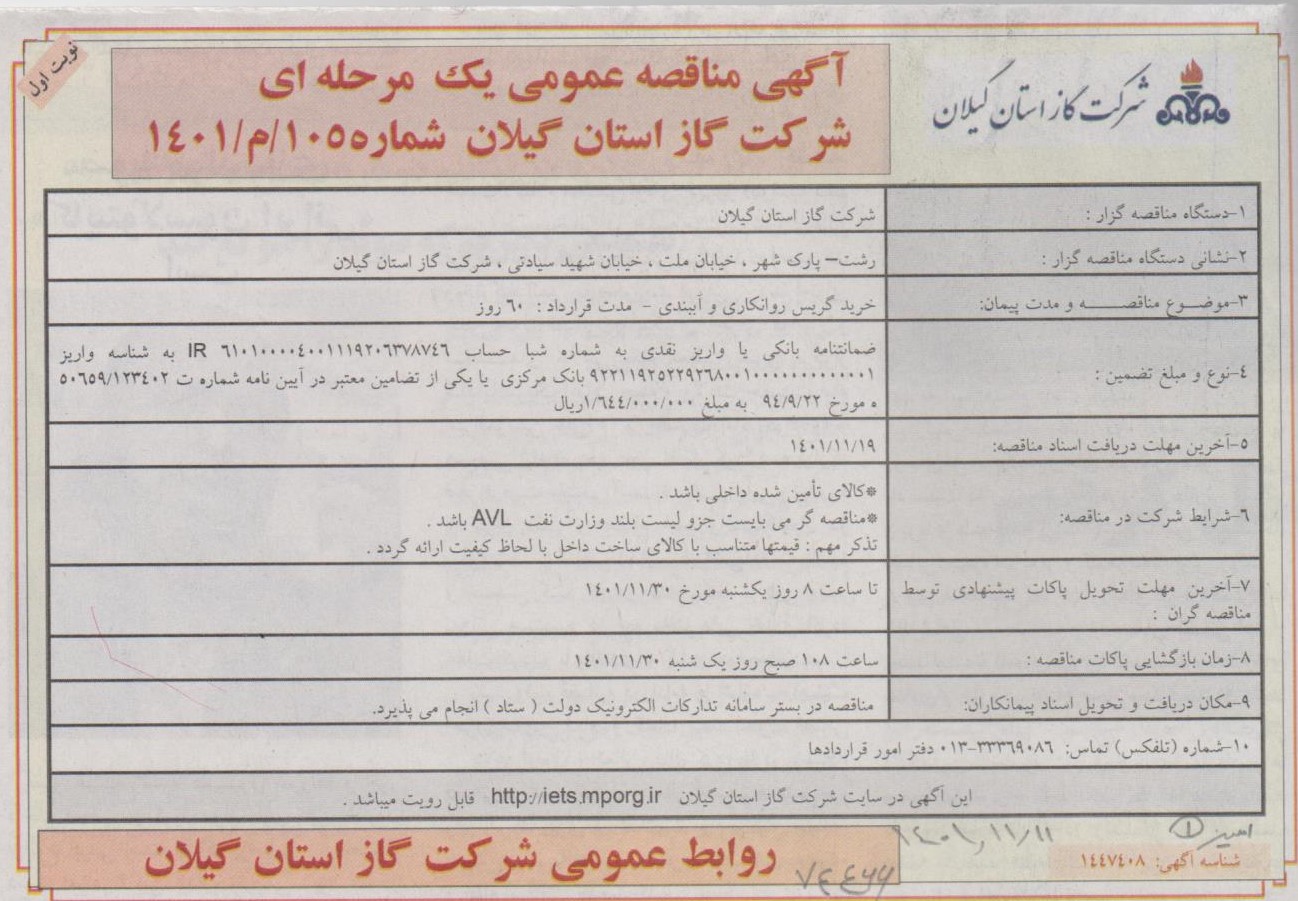 نوبت اول
آگهی مناقصه عمومی یک مرحله ای
شرکت گاز استان گیلان شماره ١٠٥/م/١٤٠١
شرکت گاز استان گیلان
١-دستگاه مناقصه گزار :
شرکت گاز استان گیلان
٢-نشانی دستگاه مناقصه گزار :
رشت– پارک شهر ، خیابان ملت ، خیابان شهید سیادتی ، شرکت گاز استان گیلان
٣-موضوع مناقصه و مدت پیمان:
خرید گریس روانکاری و آببندی - مدت قرارداد : ٦٠ روز
٤-نوع و مبلغ تضمین :
ضمانتنامه بانکی یا واریز نقدی به شماره شبا حساب IR ٦١٠١٠٠٠٠٤٠٠١١١٩٢٠٦٣٧٨٧٤٦ به شناسه واریز
بانک مرکزی یا یکی از تضامین معتبر در آیین نامه شماره ت ٥٠٦٥٩/١٢٣٤٠٢
ه مورخ ٩٤/٩/٢٢ به مبلغ ١/٦٤٤/٠٠٠/٠٠٠ریال
٥-آخرین مهلت دریافت اسناد مناقصه:
١٤٠١/١١/١٩
٦-شرایط شرکت در مناقصه:
*کالای تأمین شده داخلی باشد .
*مناقصه گر می بایست جزو لیست بلند وزارت نفت AVL باشد .
تذکر مهم : قیمتها متناسب با کالای ساخت داخل با لحاظ کیفیت ارائه گردد .
٧-آخرین مهلت تحویل پاکات پیشنهادی توسط
مناقصه گران :
تا ساعت ٨ روز یکشنبه مورخ ١٤٠١/١١/٣٠
٨-زمان بازگشایی پاکات مناقصه :
ساعت ١٠٨ صبح روز یک شنبه ١٤٠١/١١/٣٠
٩-مکان دریافت و تحویل اسناد پیمانکاران:
مناقصه در بستر سامانه تدارکات الکترونیک دولت ( ستاد ) انجام می پذیرد.
١٠-شماره (تلفکس) تماس: ٣٣٣٦٩٠٨٦-٠١٣ دفتر امور قراردادها
این آگهی در سایت شرکت گاز استان گیلان http://iets.mporg.ir قابل رویت میباشد .
١٤٠١/١١/١١
شناسه آگهی: ١٤٤٧٤٠٨
روابط عمومی شرکت گاز استان گیلان